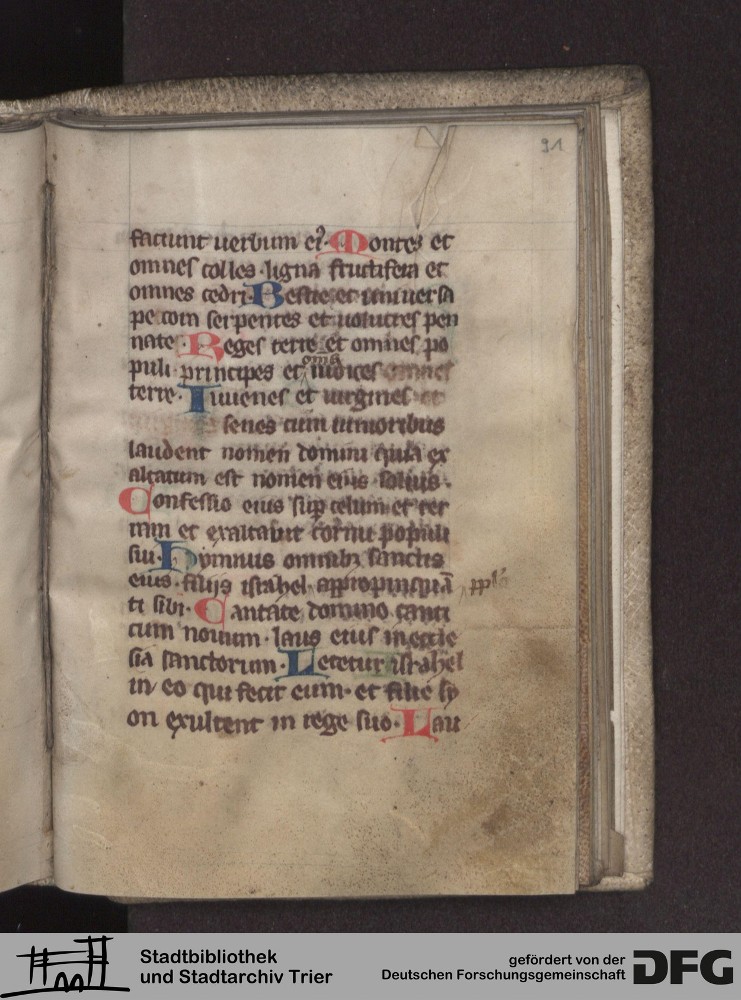 91
faciunt uerbum ei⁹. Montes et
omnes colles. ligna fructifera et
omnes cedri. Bestie et uniuersa
pecora serpentes et uolucres pen
nate. Reges terre et omnes po
puli principes et om̄s iudices omnes
terre. Iuuenes et uirgines et
senes cum iunioribus
laudent nomen domini quia ex
altatum est nomen eius solius.
Confessio eius sup celum et ter
ram et exaltauit cornu populi
sui. Hymnus omnibꝫ sanctis
eius. filijs israhel appropinquā
pplō
ti sibi. Cantate domino canti
cum nouum. laus eius in eccle
sia sanctorum. Letetur israhel
in eo qui fecit eum. et filie sy
on exultent in rege suo. Lau
Stadtbibliothek
und Stadtarchiv Trier
gefördert von der
Deutschen Forschungsgemeinschaft
DFG